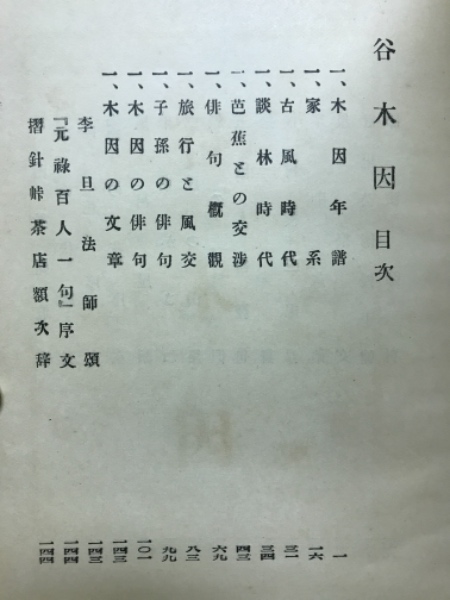 谷木因目次
一、木因年譜 一
一、家系 一六
一、古風時代 三一
一、談林時代 三四
一、芭蕉との交渉 四三
一、俳句概觀 六九
一、旅行と風交 八三
一、子孫の俳句 九九
一、木因の俳句 一〇一
一、木因の文章 一四三
李旦法師頌 一四三
『元祿百人一句』序文 一四四
摺針峠茶店額次辞 一四四